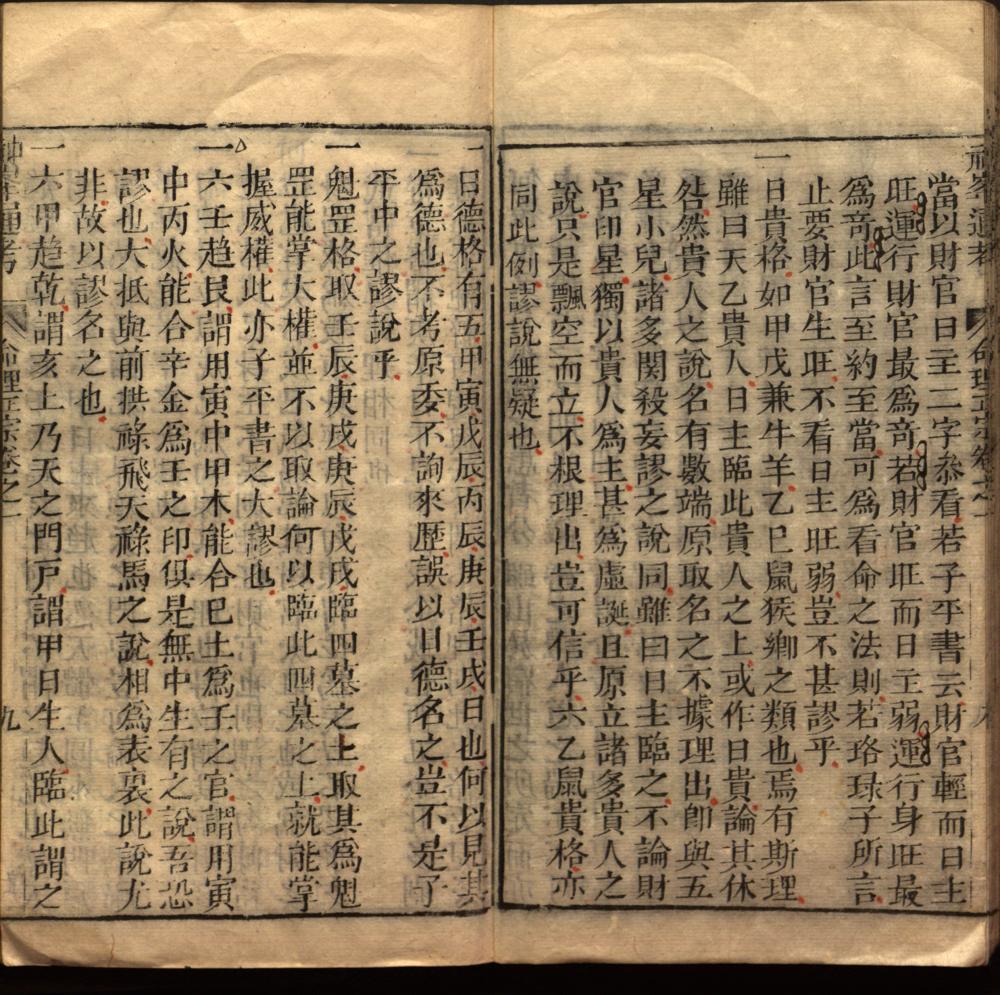 神峯通考 命理正宗卷之一 八
當以財官日主二字叅看若子平書云財官輕而日主
旺運行財官最爲奇若財官旺而日主弱運行身旺最
爲奇此言至約至當可爲看命之法則若珞琭子所言
止要財官生旺不看日主旺弱豈不甚謬乎
一日貴格如甲戊兼牛羊乙巳鼠猴鄉之類也焉有斯理
雖曰天乙貴人日主臨此貴人之上或作日貴論其休
咎然貴人之說名有數端原取名之不據理出卽與五
星小兒諸多関殺妄謬之說同雖曰日主臨之不論財
官印星獨以貴人爲主甚爲虛誕且原立諸多貴人之
說只是飄空而立不根理出豈可信乎六乙鼠貴格亦
同此例謬說無疑也
一日德格有五甲寅戊辰丙辰庚辰壬戌日也何以見其
爲德也不考原委不詢來歷誤以日德名之豈不是子
平中之謬說乎
一魁罡格取壬辰庚戌庚辰戊戌臨四墓之上取其爲魁
罡能掌大權並不以取論何以臨此四墓之上就能掌
握威權此亦子平書之大謬也
一六壬趋艮謂用寅中甲木能合巳土爲壬之官謂用寅
中丙火能合辛金爲壬之印俱是無中生有之說吾恐
謬也大抵與前拱祿飛天祿馬之說相爲表裏此說尤
非故以謬名之也
一六甲趋乾謂亥上乃天之門戶謂甲日生人臨此謂之
神峯通考 命理正宗卷之一 九